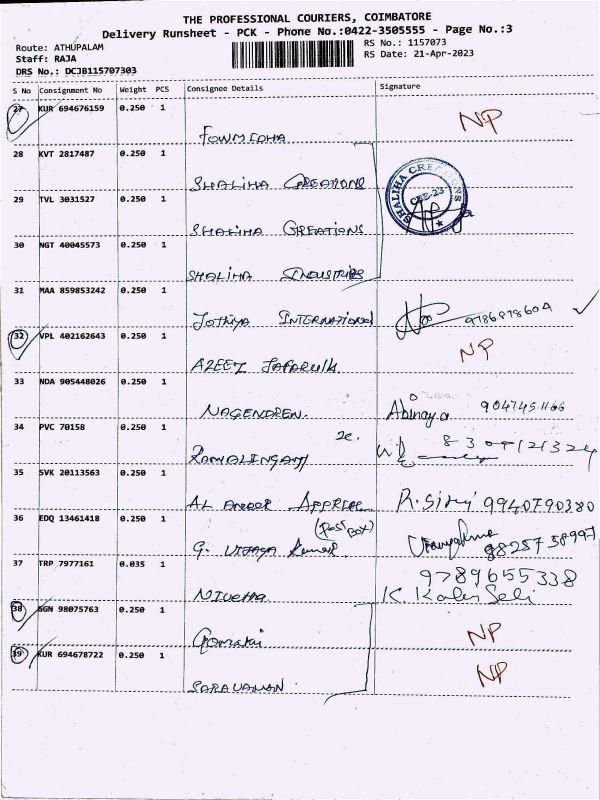 THE PROFESSIONAL COURIERS, COIMBATORE
Delivery Runsheet - PCK - Phone No.:0422-3505555 - Page No.:3
Route: ATHUPALAM
RS No.: 1157073
Staff: RAJA
RS Date: 21-Apr-2023
DRS No.: DCJB115707303
S No Consignment No Weight PCS Consignee Details Signature
27 KUR 694676159 0.250 1 NP
28 KVT 2817487 0.250 1 SHALIHA CREATIONS
SHALIHA CREATIONS
CBE-23
29 TVL 3031527 0.250 1 SHALIHA CREATIONS
30 NGT 40045573 0.250 1 SHALIHA INDUSTRIES
31 MAA 859853242 0.250 1 JOTHIYA INTERNATIONAL
32 VPL 402162643 0.250 1 AZEEZ NP
33 NDA 905448026 0.250 1 NAGENDREN. Abinaya
34 PVC 70158 0.250 1 RAMALINGAM
35 SVK 20113563 0.250 1 AL AMEER R. 9940790380
36 EDQ 13461418 0.250 1 G. VIJAYA Kumar (POST BOX)
37 TRP 7977161 0.035 1 NIVETHA. 9789655338
K
38 SGN 98075763 0.250 1 NP
39 KUR 694678722 0.250 1 SARAVANAN NP